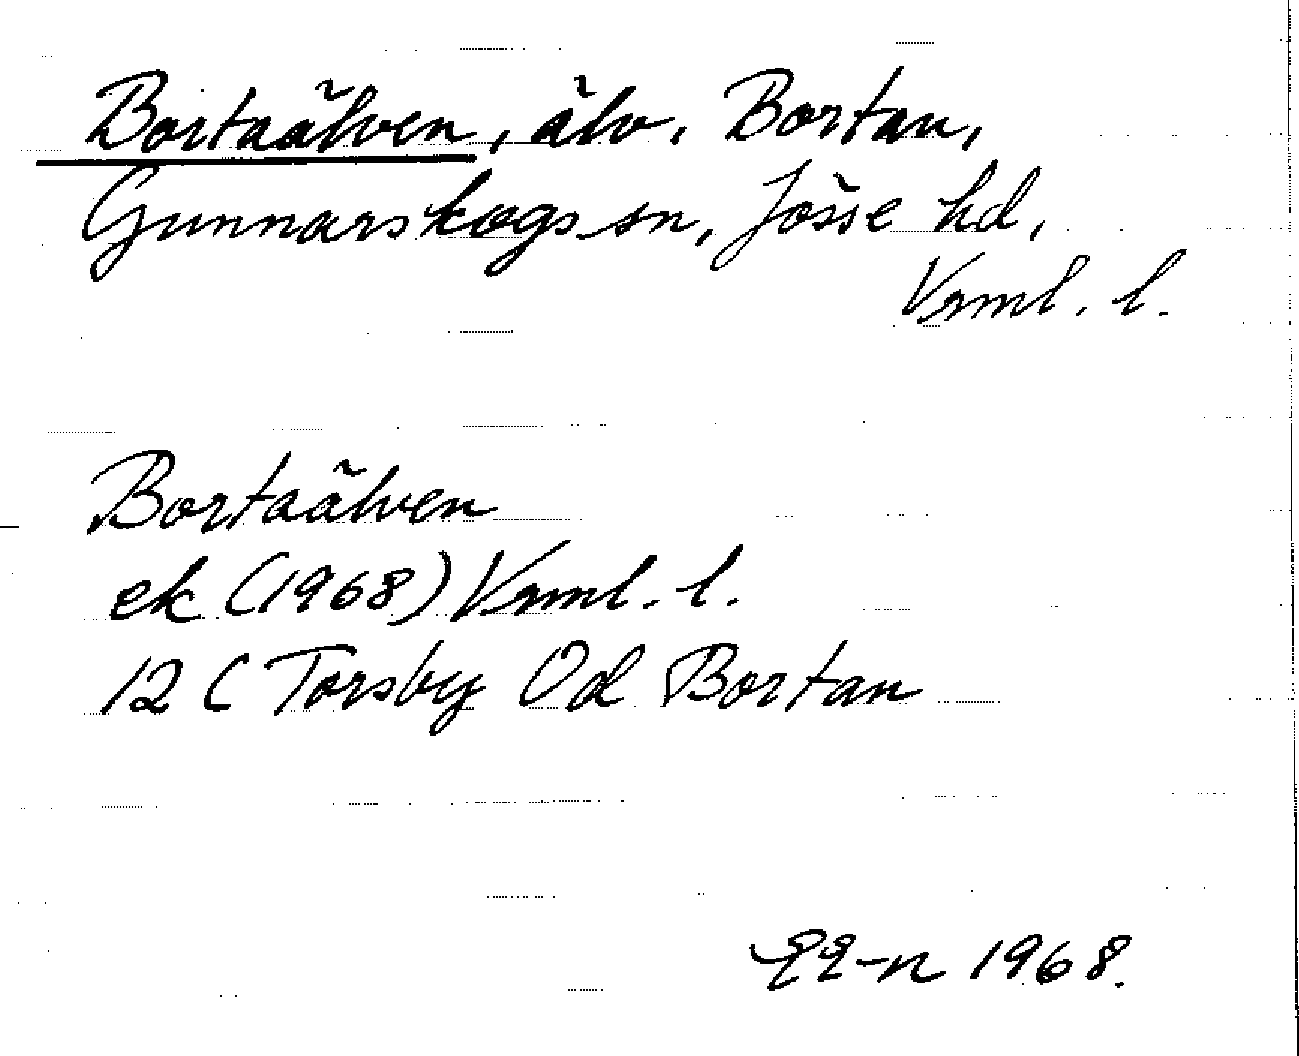 Bortaälven, älv. Bortan,
Gunnarskogs sn, Jösse hd,
Vrml. l.
Bortaälven
ek (1968) Vrml. l.
12 C Torsby 0d Bortan
1968.